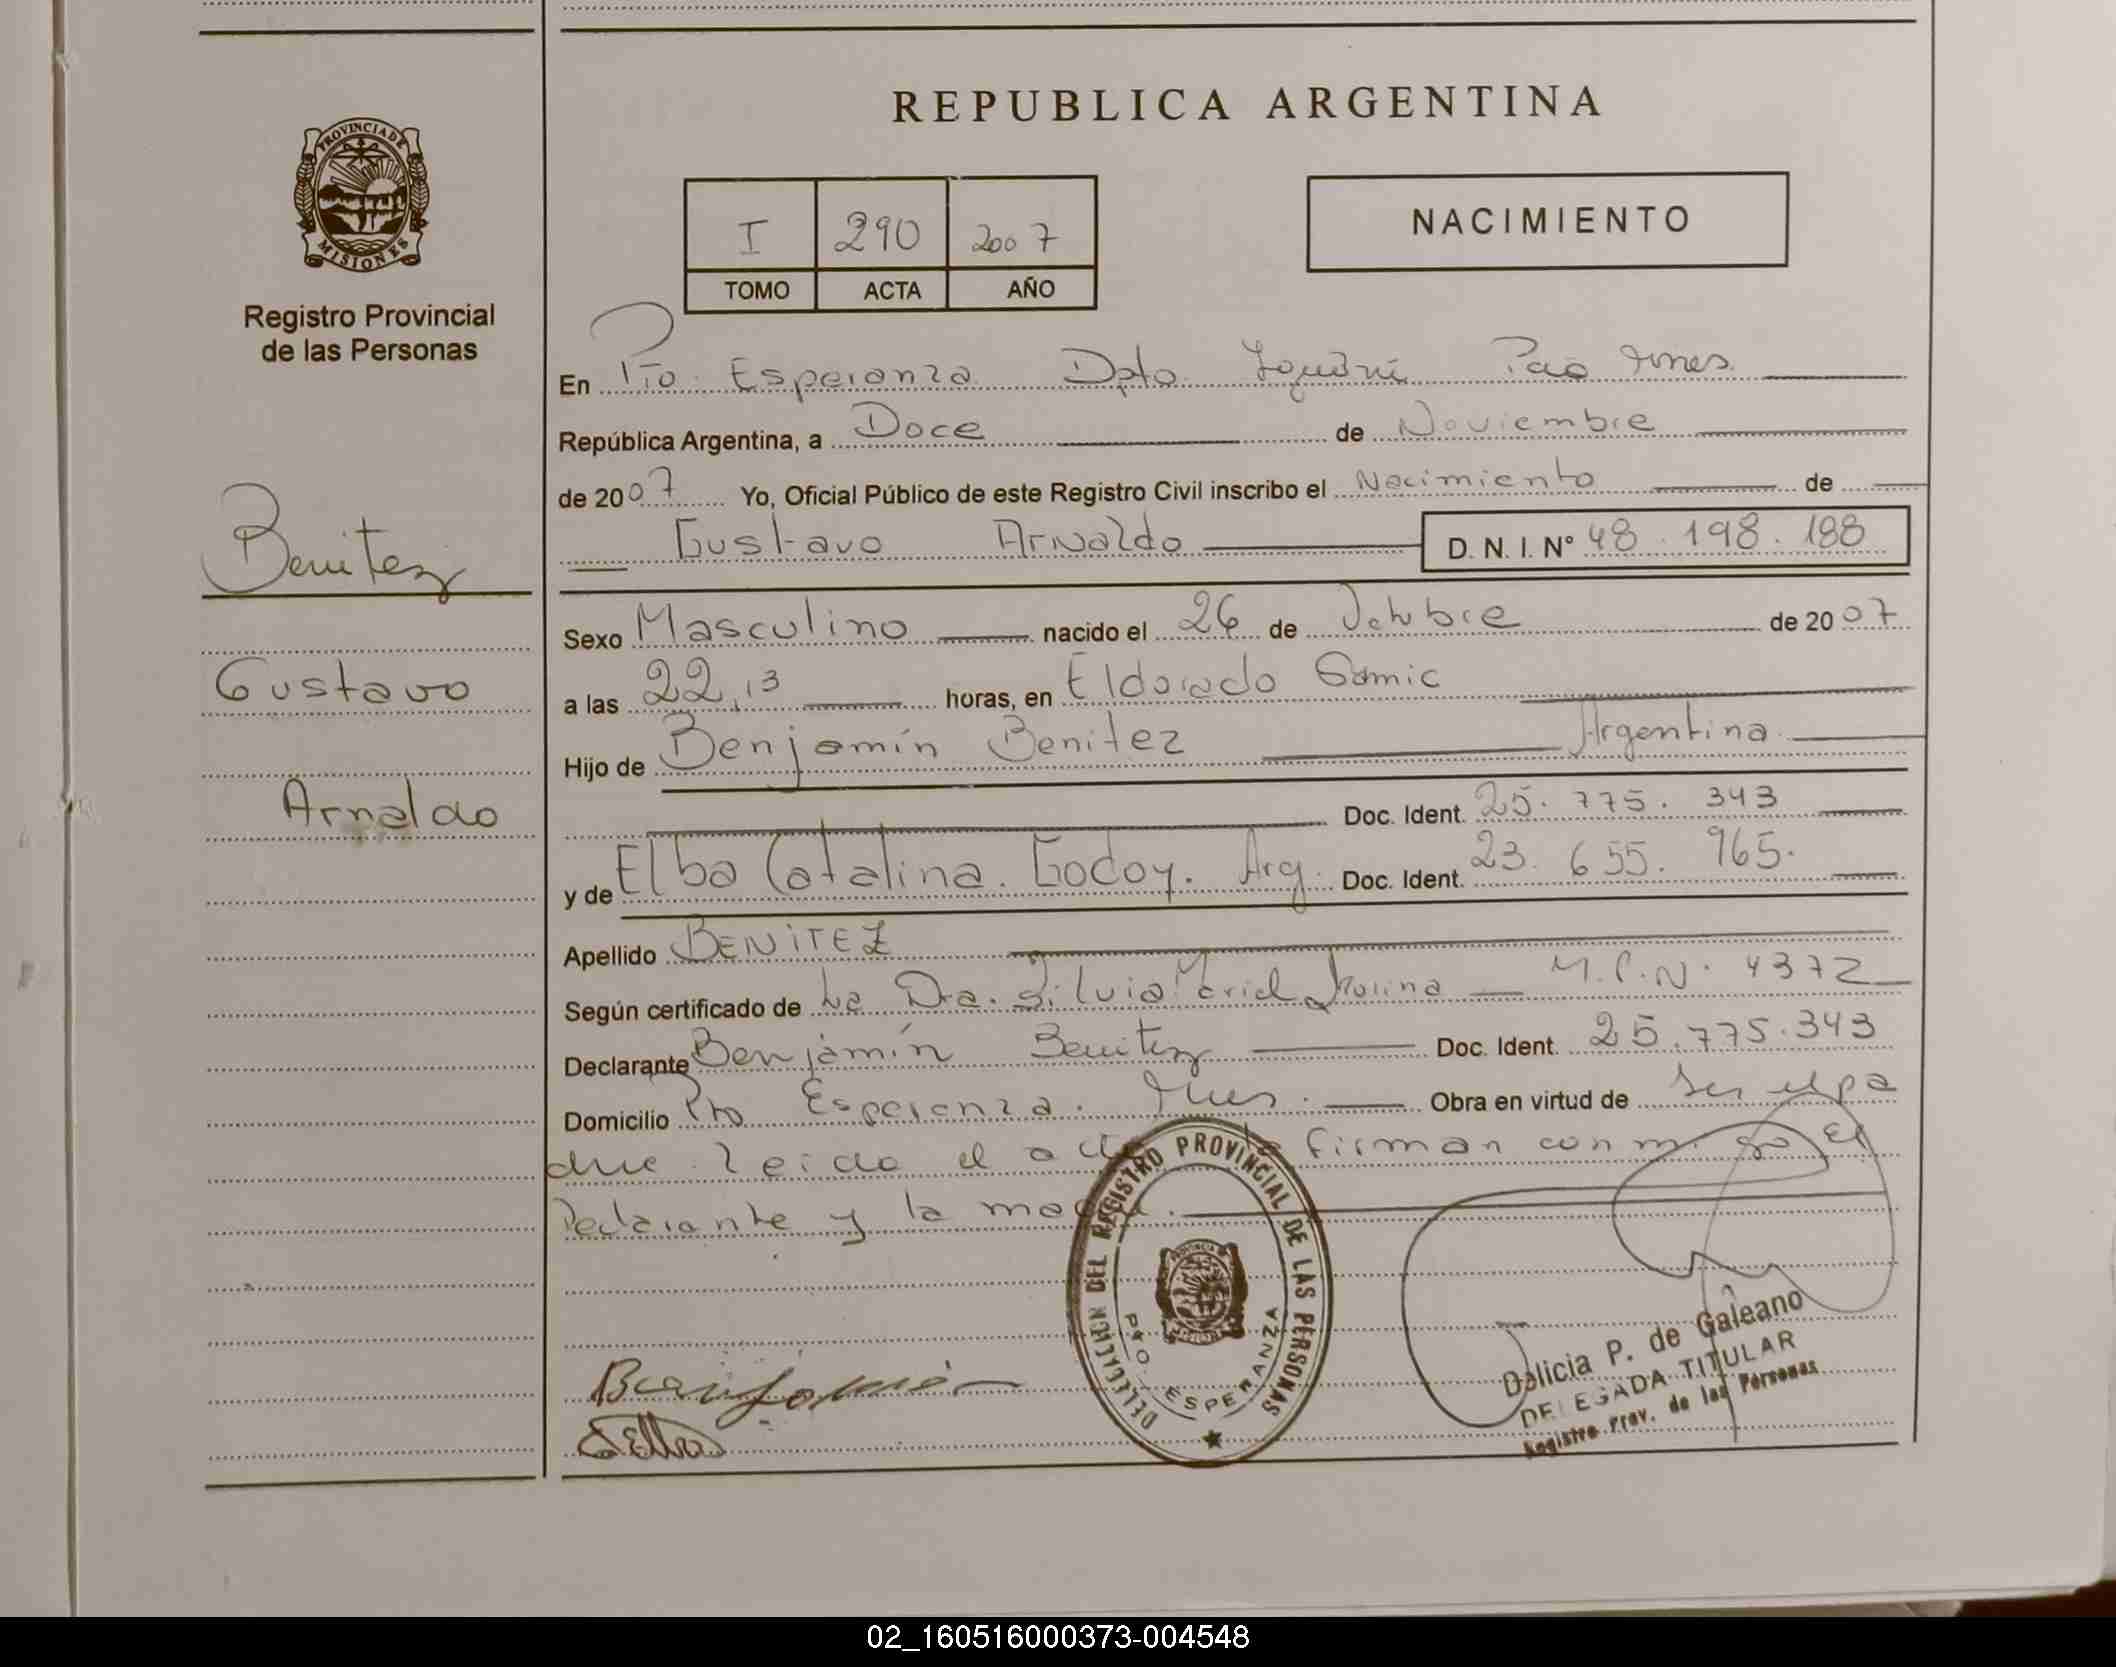 REPUBLICA ARGENTINA
PROVINCIA DE
MISIONES
Registro Provincial
de las Personas
I 290 2007
TOMO ACTA AÑO
NACIMIENTO
En Pto. Esperanza Dpto. Iguazú Pcia Mnes.
República Argentina, a Doce de Noviembre
de 2007 Yo, Oficial Público de este Registro Civil inscribo el Nacimiento de
Gustavo Arnaldo D. N. I. Nº 48.198.188
Benitez
Gustavo
Arnaldo
Sexo Masculino nacido el 26 de Octubre de 2007
a las 22,13 horas, en Eldorado Samic
Hijo de Benjamín Benitez Argentina
Doc. Ident. 25.775.343
y de Elba Catalina Godoy. Arg. Doc. Ident. 23.655.965.
Apellido BENITEZ
Según certificado de La Dra. Silvia M.P.N. 4372
Declarante Benjamín Benitez Doc. Ident. 25.775.343
Domicilio Pto Esperanza. Mnes. Obra en virtud de ser el pa
dre leido el acta la firman conmigo el
Declarante y la madre.
DELEGACION DEL REGISTRO PROVINCIAL DE LAS PERSONAS
PTO. ESPERANZA
PROVINCIA
MISIONES
Benjamín
Elba
Delicia P. de Galeano
DELEGADA TITULAR
Registro Prov. de las Personas
02_160516000373-004548